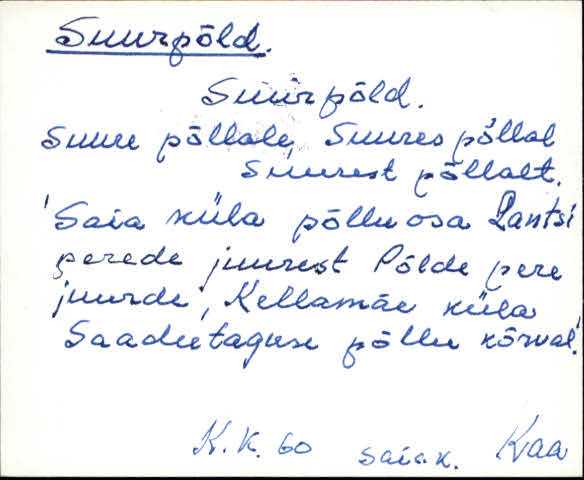 Suurpõld.
Suurpõld.
Suure põllale, Suures põllal
Suurest põllalt.
'Saia küla põlluosa Lantsi
perede juurest Põlde pere
juurde, Kellamäe küla
Saadutaguse põllu kõrval.'
K.K. 60 Saia k. Kaa